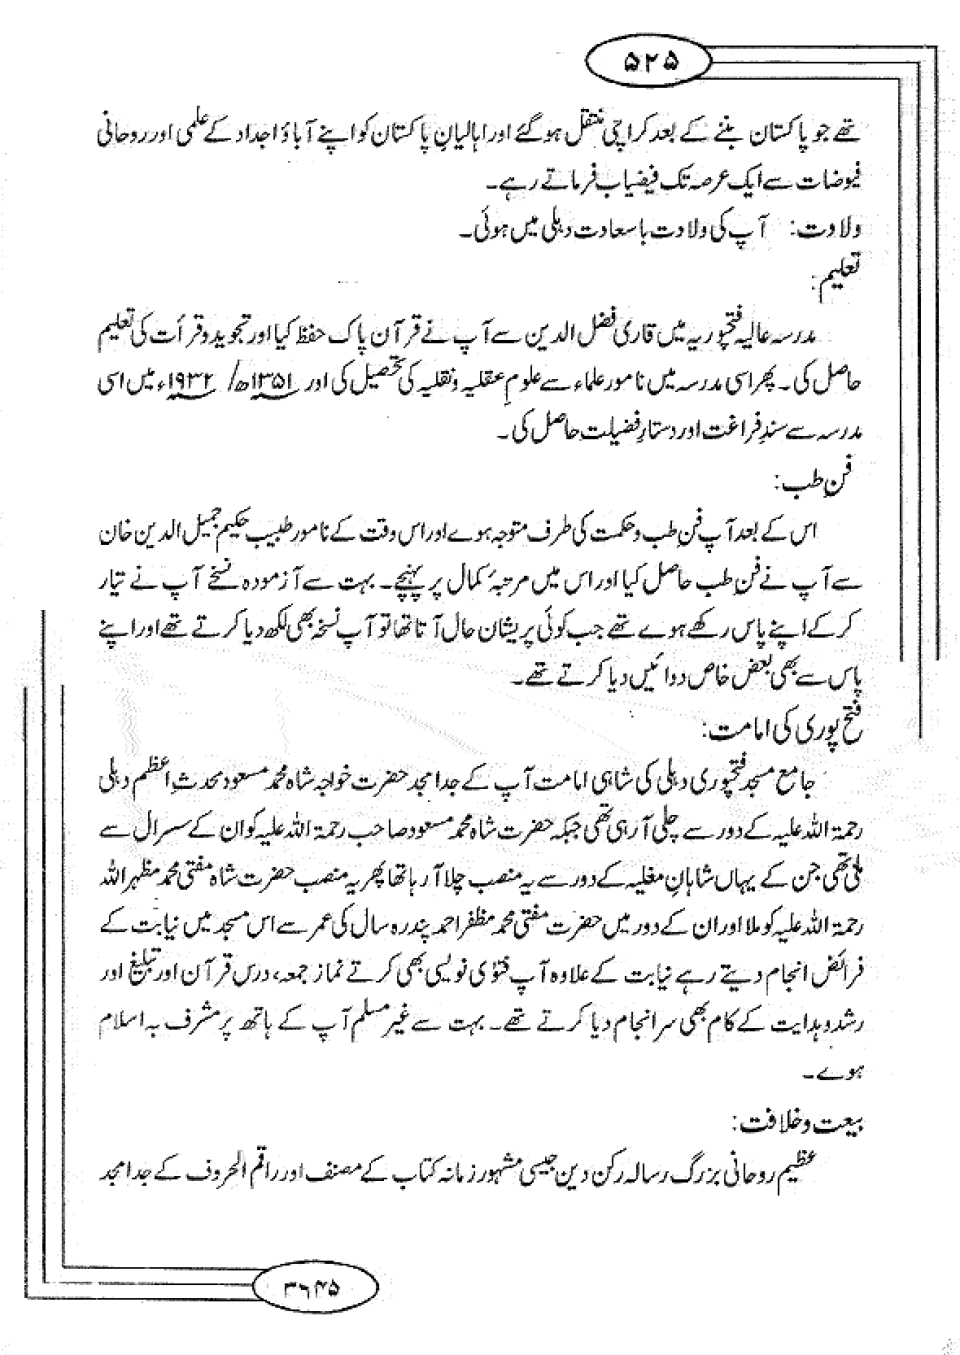 ۵۲۵
تھے جو پاکستان بننے کے بعد کراچی منتقل ہوگئے اور اہالیانِ پاکستان کو اپنے آباؤ اجداد کے علمی اور روحانی
فیوضات سے ایک عرصہ تک فیضیاب فرماتے رہے۔
ولادت: آپ کی ولادت باسعادت دہلی میں ہوئی۔
تعلیم:
مدرسہ عالیہ فتحپوریہ میں قاری فضل الدین سے آپ نے قرآن پاک حفظ کیا اور تجوید و قرأت کی تعلیم
حاصل کی۔ پھر اسی مدرسہ میں نامور علماء سے علومِ عقلیہ و نقلیہ کی تحصیل کی اور ۱۳۵۱ھ/ ۱۹۳۲ء میں اسی
مدرسہ سے سندِ فراغت اور دستارِ فضیلت حاصل کی۔
فنِ طب:
اس کے بعد آپ فنِ طب و حکمت کی طرف متوجہ ہوے اور اس وقت کے نامور طبیب حکیم جمیل الدین خان
سے آپ نے فنِ طب حاصل کیا اور اس میں مرتبۂ کمال پر پہنچے۔ بہت سے آزمودہ نسخے آپ نے تیار
کر کے اپنے پاس رکھے ہوے تھے جب کوئی پریشان حال آتا تھا تو آپ نسخہ بھی لکھ دیا کرتے تھے اور اپنے
پاس سے بھی بعض خاص دوائیں دیا کرتے تھے۔
فتح پوری کی امامت:
جامع مسجد فتحپوری دہلی کی شاہی امامت آپ کے جد امجد حضرت خواجہ شاہ محمد مسعود محدثِ اعظم دہلی
رحمۃ اللہ علیہ کے دور سے چلی آ رہی تھی جبکہ حضرت شاہ محمد مسعود صاحب رحمۃ اللہ علیہ کو ان کے سسرال سے
ملی تھی جن کے یہاں شاہانِ مغلیہ کے دور سے یہ منصب چلا آ رہا تھا پھر یہ منصب حضرت شاہ مفتی محمد مظہر اللہ
رحمۃ اللہ علیہ کو ملا اور ان کے دور میں حضرت مفتی محمد مظفر احمد پندرہ سال کی عمر سے اس مسجد میں نیابت کے
فرائض انجام دیتے رہے نیابت کے علاوہ آپ فتوٰی نویسی بھی کرتے نماز جمعہ، درس قرآن اور تبلیغ اور
رشد و ہدایت کے کام بھی سر انجام دیا کرتے تھے۔ بہت سے غیر مسلم آپ کے ہاتھ پر مشرف بہ اسلام
ہوے۔
بیعت و خلافت:
عظیم روحانی بزرگ رسالہ رکن دین جیسی مشہور زمانہ کتاب کے مصنف اور راقم الحروف کے جد امجد
۳۶۴۵